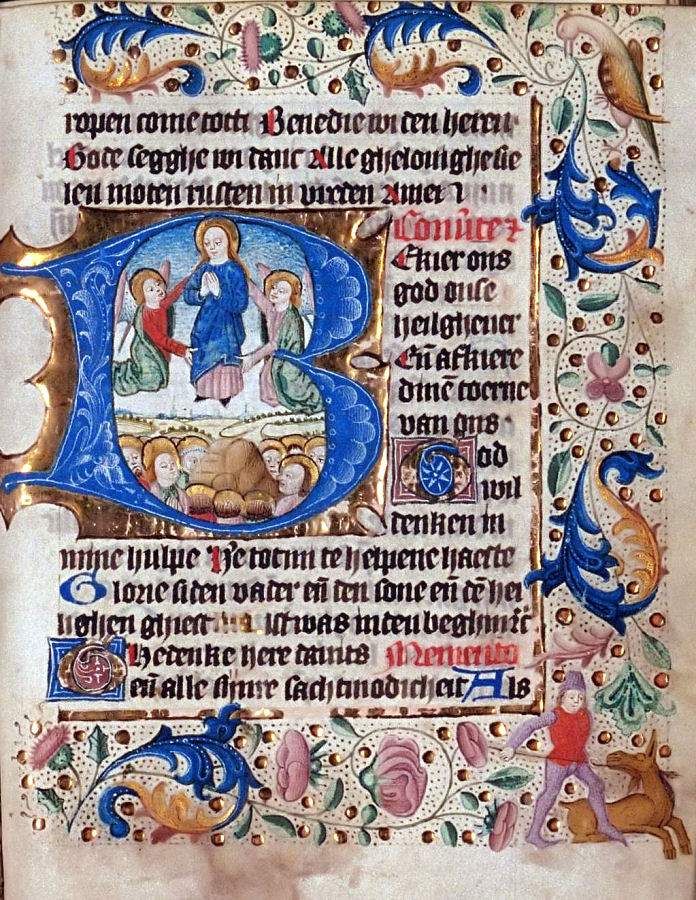 ropen come totti Benedie wi den heren
Gode segghe wi danc Alle ghelouighe sie
len moten rusten in vreden Amen
Conūte
B Ekier ons
god onse
heilgheuer
Eñ afkiere
dinē toerne
van ons
God
wil
denken in
mine hulpe He tot mi te helpene haeste
Glorie si den vader eñ den sone eñ dē hei
lighen gheest ist was inden beghin
Ghedenke here dauids Memento
eñ alle sijnre sachtmodicheit Als